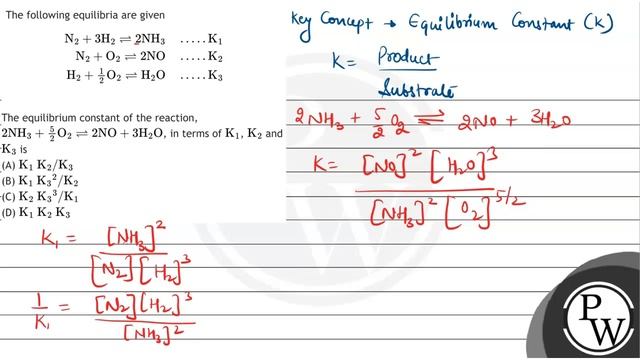 The following equilibria are given
N₂ + 3H₂ ⇌ 2NH₃ .....K₁
N₂ + O₂ ⇌ 2NO .....K₂
H₂ + ½O₂ ⇌ H₂O .....K₃
The equilibrium constant of the reaction,
2NH₃ + 5/2 O₂ ⇌ 2NO + 3H₂O, in terms of K₁, K₂ and
K₃ is
(A) K₁ K₂/K₃
(B) K₁ K₃²/K₂
(C) K₂ K₃³/K₁
(D) K₁ K₂ K₃
Key Concept → Equilibrium Constant (K)
K = Product / Substrate
2NH₃ + 5/2 O₂ ⇌ 2NO + 3H₂O
K = [NO]² [H₂O]³ / [NH₃]² [O₂]^5/2
K₁ = [NH₃]² / [N₂] [H₂]³
1/K₁ = [N₂] [H₂]³ / [NH₃]²
PW